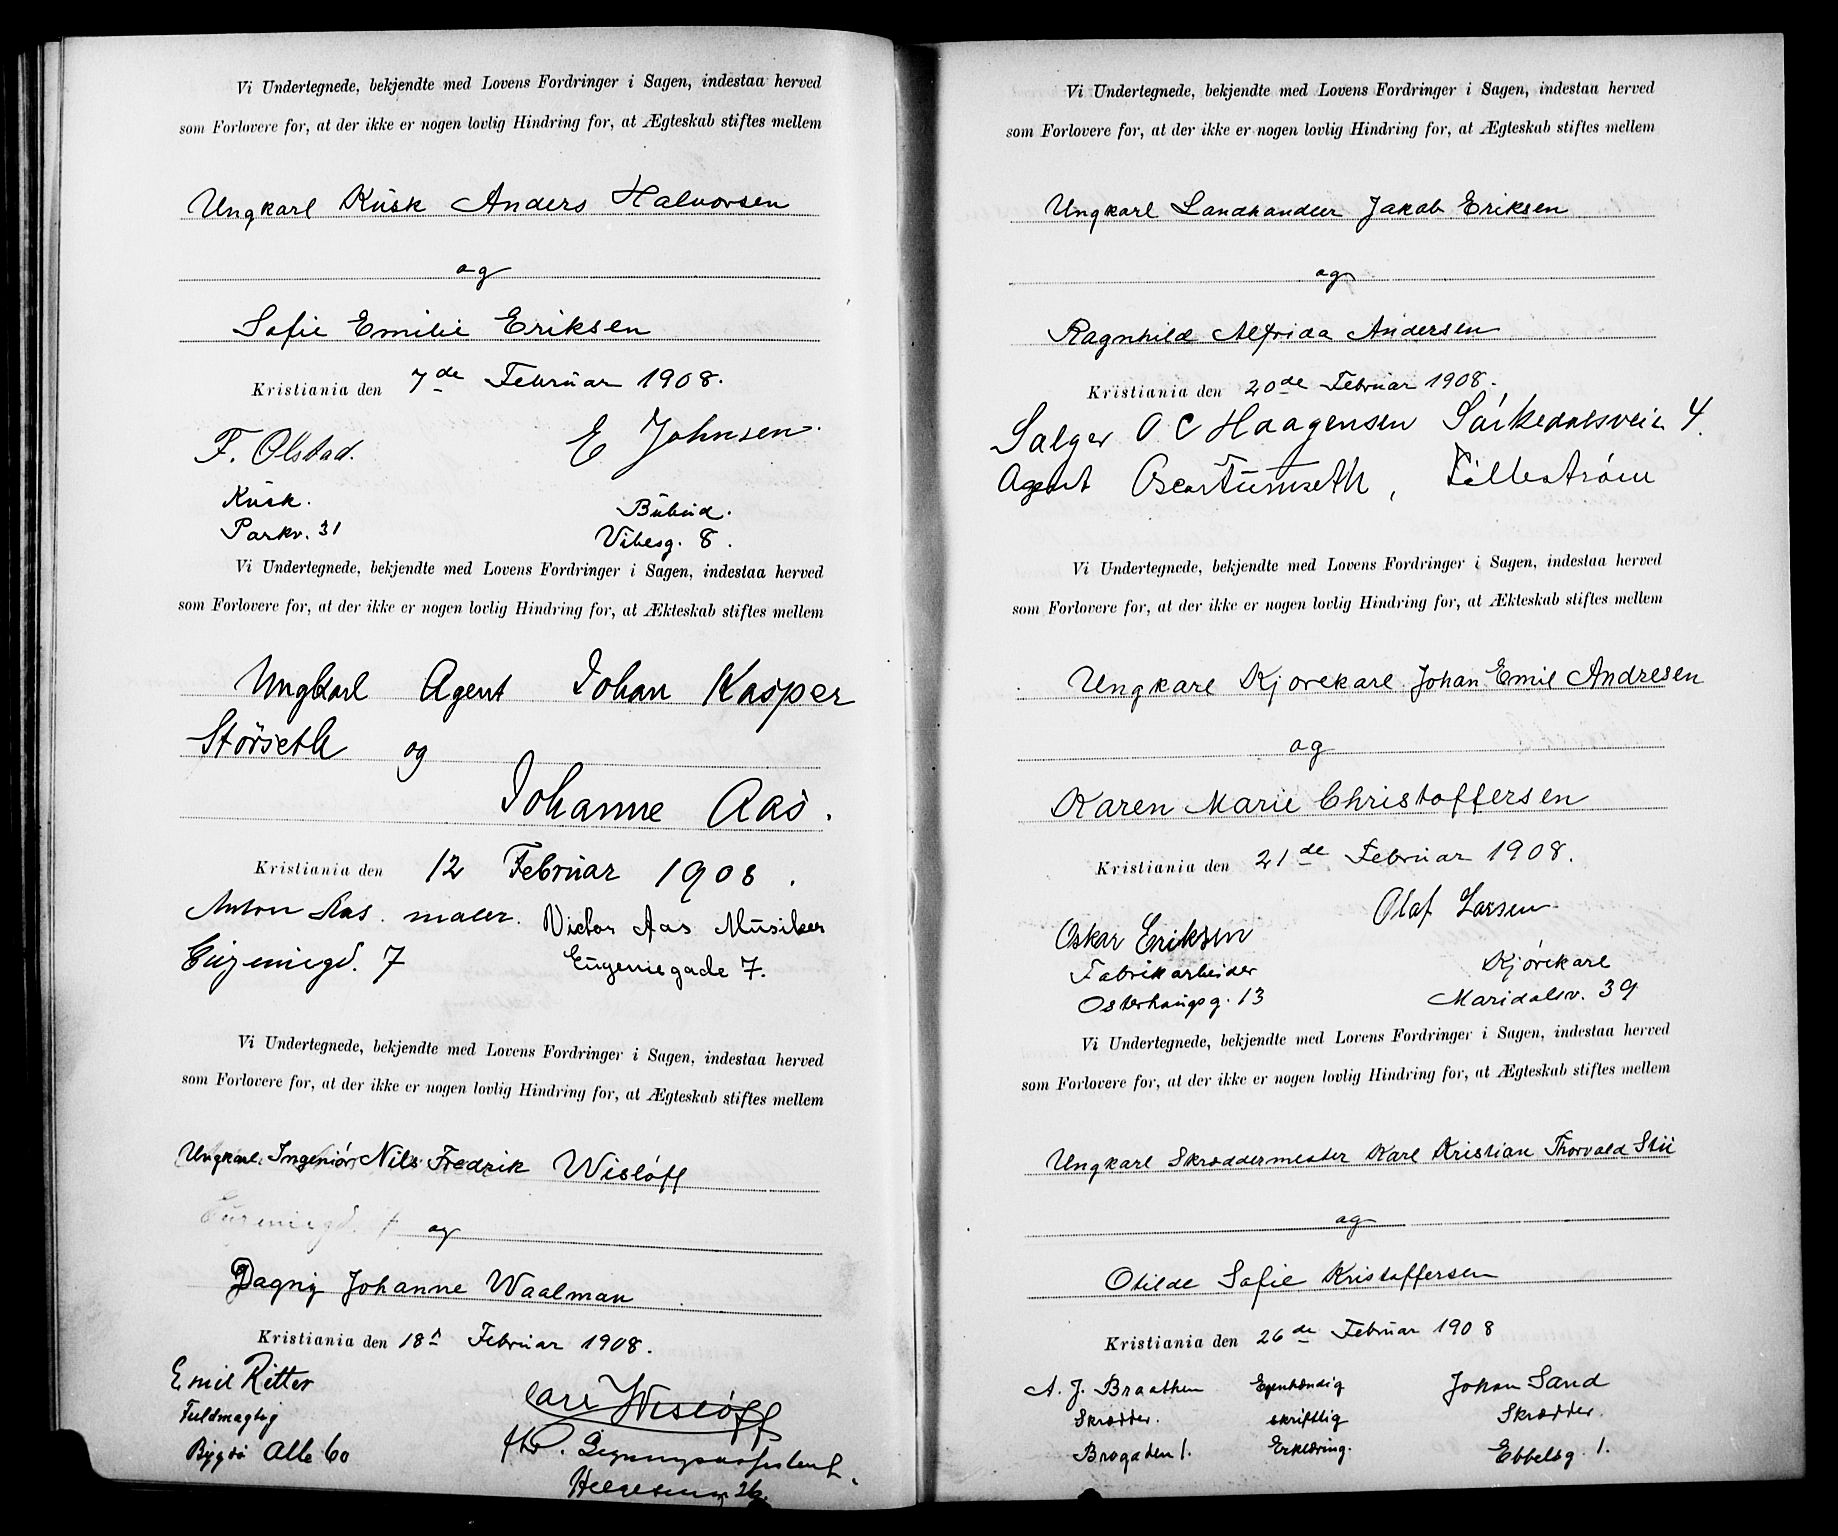 Vi Undertegnede, bekjendte med Lovens Fordringer i Sagen, indestaa herved
som Forlovere for, at der ikke er nogen lovlig Hindring for, at Ægteskab stiftes mellem
Ungkarl Kusk Anders Halvorsen
og
Sofie Emilie Eriksen
Kristiania den 7de Februar 1908.
F. Olstad. E Johnsen.
Kusk. Bübud.
Parkv. 31 Vibesg. 8.
Vi Undertegnede, bekjendte med Lovens Fordringer i Sagen, indestaa herved
som Forlovere for, at der ikke er nogen lovlig Hindring for, at Ækteskab stiftes mellem
Ungkarl Agent Johan Kasper
Störseth og
Johanne Aas.
Kristiania den 12 Februar 1908.
Anton Aas. maler. Victor Aas Musiker
Eugeniegd. 7 Eugeniegade 7.
Vi Undertegnede, bekjendte med Lovens Fordringer i Sagen, indestaa herved
som Forlovere for, at der ikke er nogen lovlig Hindring for, at Ægteskab stiftes mellem
Ungkarl, Ingeniør, Nils Fredrik Wisløff
Eugeniegd. 7 og
Dagny Johanne Waalman
Kristiania den 18d Februar 1908.
Emil Ritter Carl Wisløff
Fuldmægtig
Bygdö Alle 60 Helgesensg. 26.
Vi Undertegnede, bekjendte med Lovens Fordringer i Sagen, indestaa herved
som Forlovere for, at der ikke er nogen lovlig Hindring for, at Ægteskab stiftes mellem
Ungkarl Landhandler Jakob Eriksen
og
Ragnhild Alfrida Andersen
Kristiania den 20de Februar 1908.
Sælger O C Haagensen Sörkedalsvein 4.
Agent Oscar Tumseth, Lillestrøm
Vi Undertegnede, bekjendte med Lovens Fordringer i Sagen, indestaa herved
som Forlovere for, at der ikke er nogen lovlig Hindring for, at Ækteskab stiftes mellem
Ungkarl Kjørekarl Johan Emil Andresen
og
Karen Marie Christoffersen
Kristiania den 21de Februar 1908.
Oskar Eriksen Olaf Larsen
Fabrikarbeider Kjørekarl
Osterhaugsg. 13 Maridalsv. 39
Vi Undertegnede, bekjendte med Lovens Fordringer i Sagen, indestaa herved
som Forlovere for, at der ikke er nogen lovlig Hindring for, at Ægteskab stiftes mellem
Ungkarl Skræddermester Karl Kristian Thorvald Stii
og
Otilde Sofie Kristoffersen
Kristiania den 26de Februar 1908
A. J. Braathen Egenhændig Johan Sand
Skrædder. skriftlig Skrædder.
Brogaden 1. Erklæring. Ebbelsg. 1.